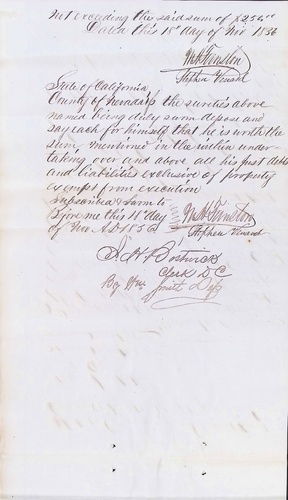 not exceeding the said sum of $250.00
Dated this 18th day of Nov 1856
Stephen Venard
State of California
County of Nevada ss the sureties above
named being duly sworn depose and
say each for himself that he is worth the
sum mentioned in the within under-
taking over and above all his just debts
and liabilities exclusive of property
exempt from execution
subscribed & sworn to
before me this 18th day
of Nov AD 1856
Stephen Venard
J. H. Bostwick
Clerk D C
By Wm Smith Dpty